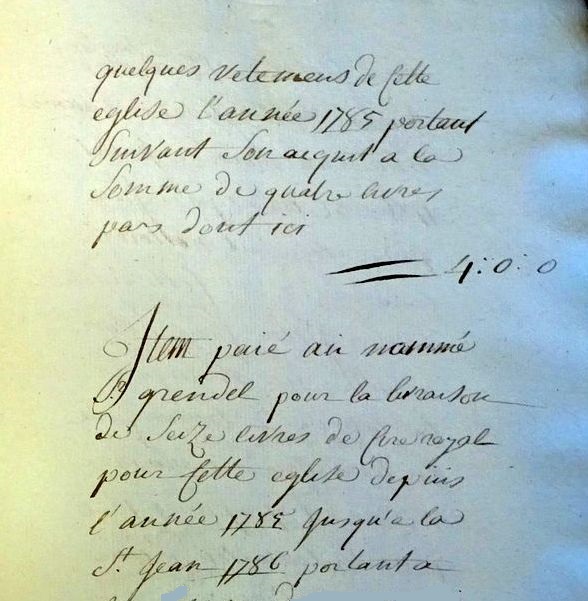 quelques vetemens de Cette
eglise l'année 1785 portant
Suivant Son acquit a la
Somme de quatre livres
pars dont ici
4:0:0
Item paié au nommé
Sr grendel pour la livraison
de Seize livres de Cire
pour Cette eglise depuis
l'année 1785 Jusqu'a la
St Jean 1786 portant a